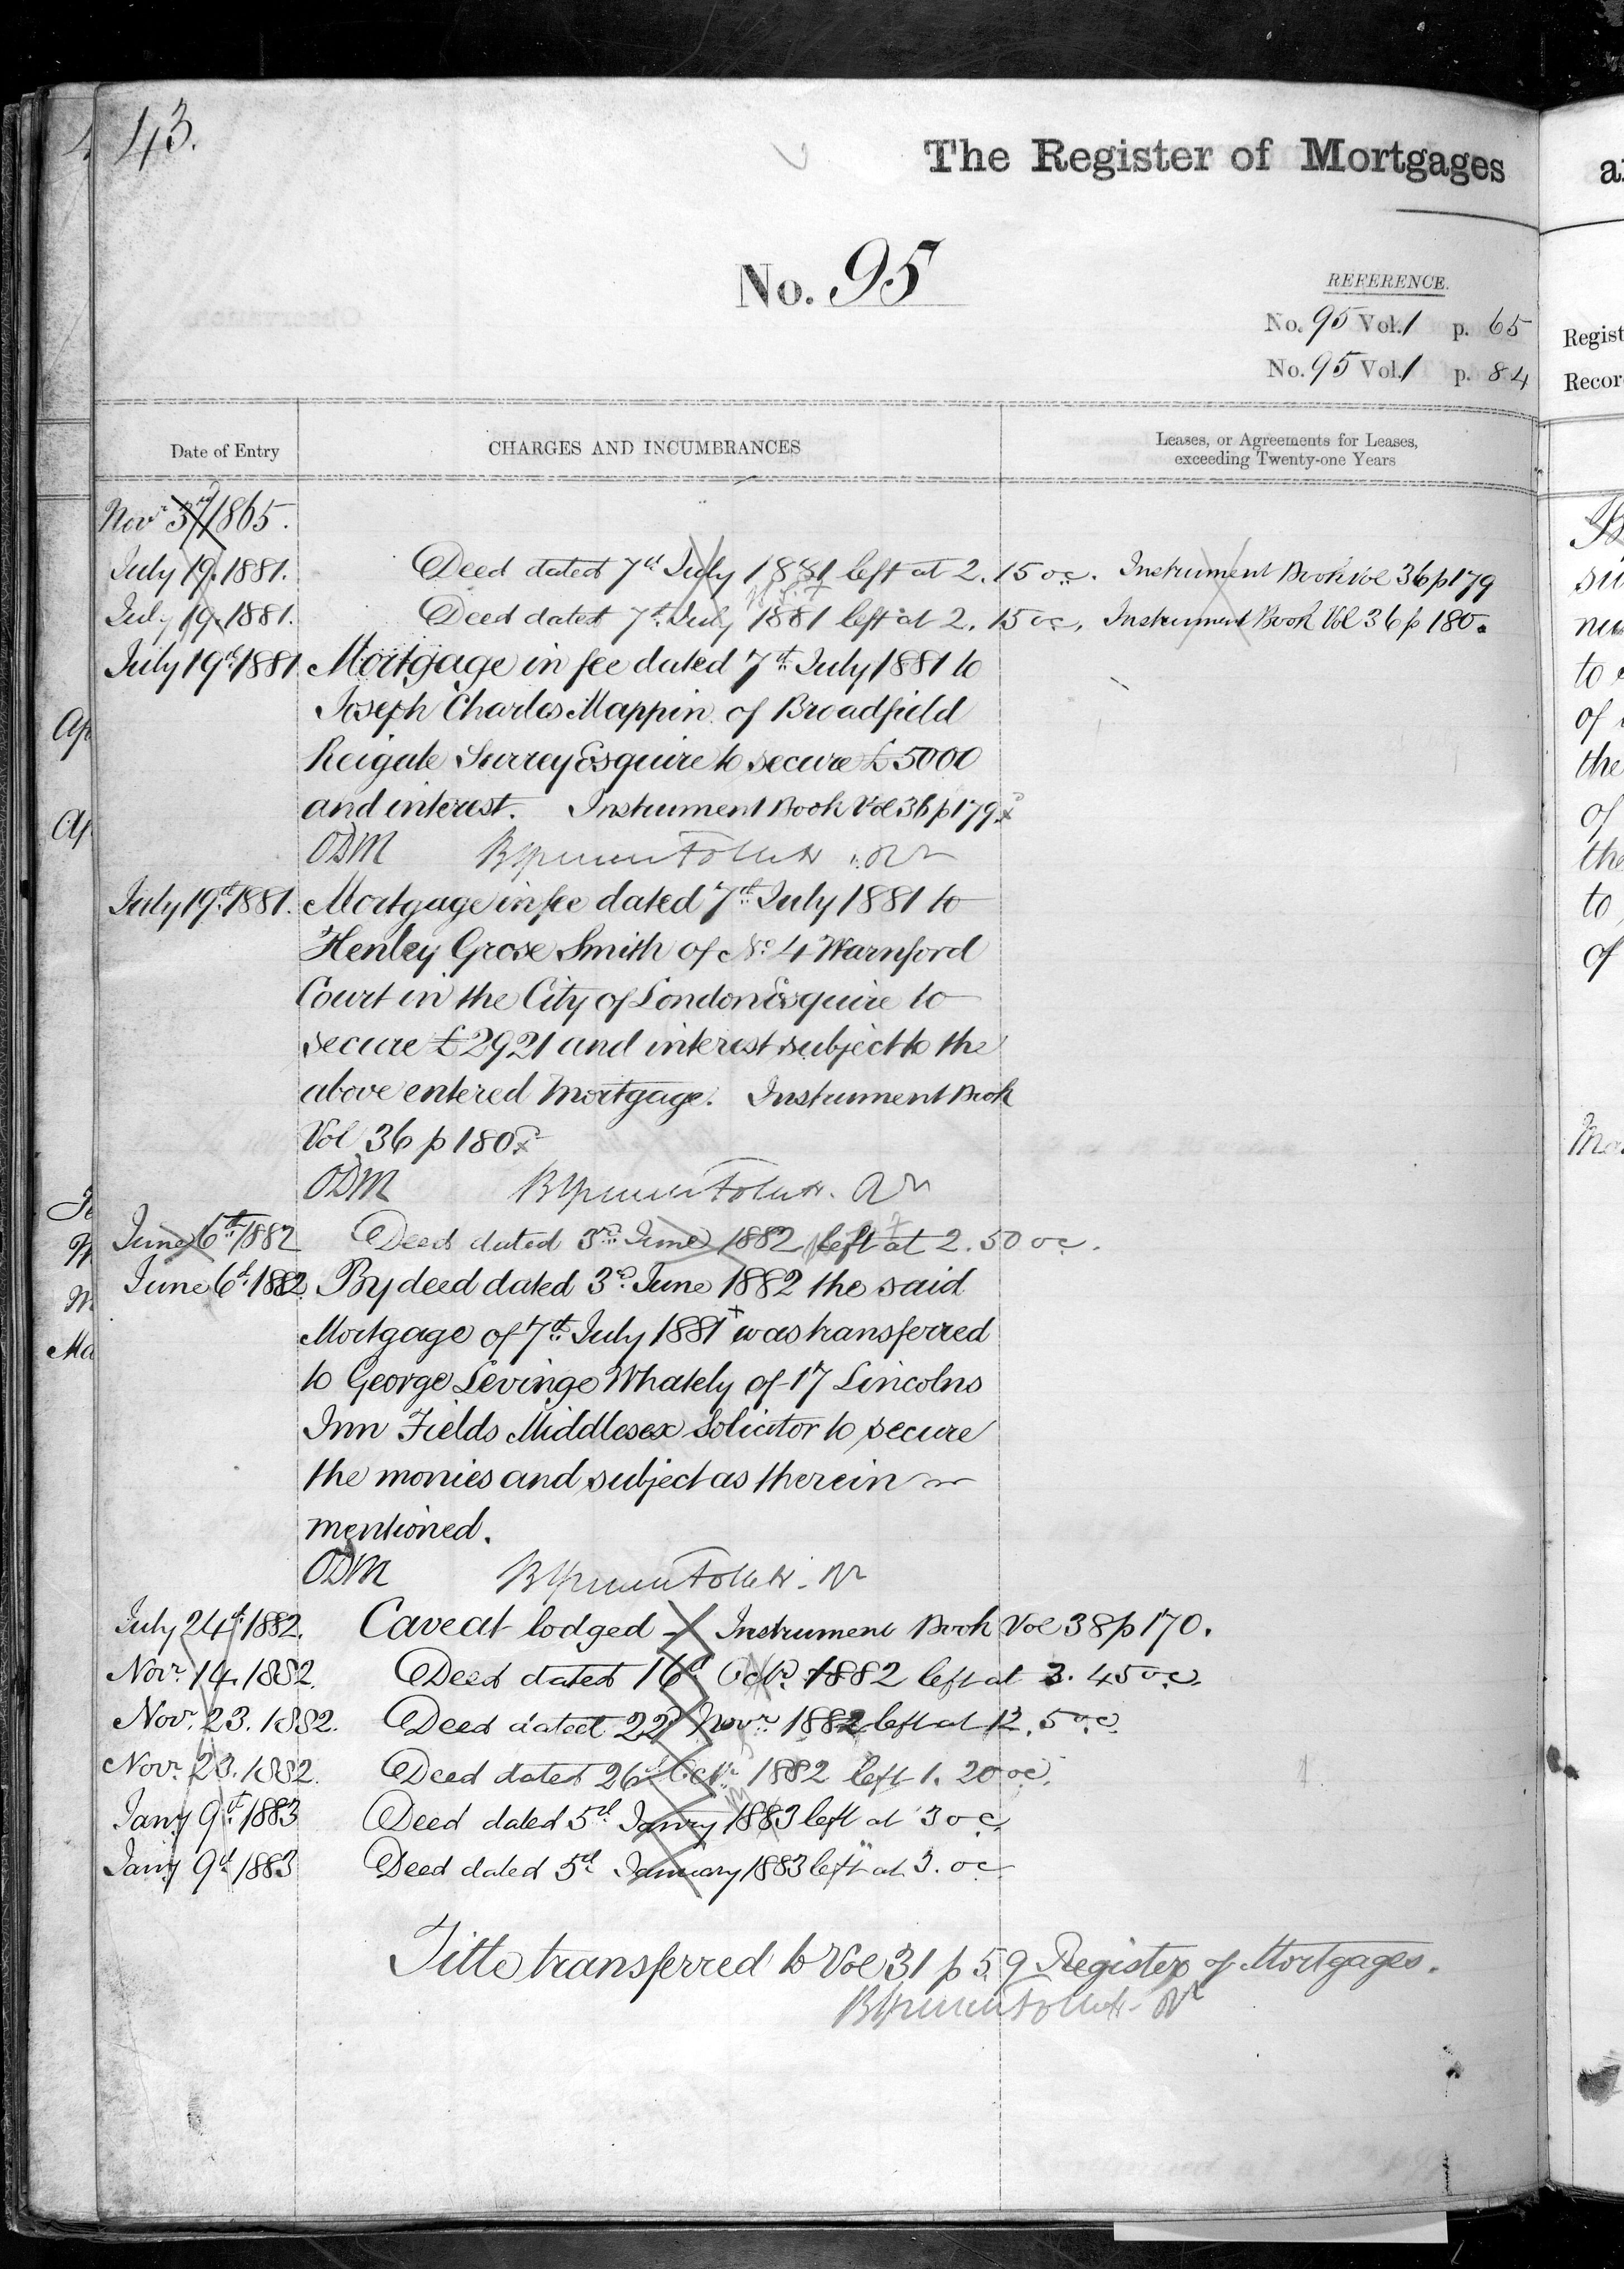 43.
The Register of Mortgages
No. 95
REFERENCE.
No. 95 Vol. 1 p. 65
No. 95 Vol. 1 p. 84
Date of Entry
CHARGES AND INCUMBRANCES
Leases, or Agreements for Leases,
exceeding Twenty-one Years
Novr 3rd 1865.
July 19. 1881. Deed dated 7th July 1881 left at 2.15 oc. Instrument Book Vol 36 p 179
July 19. 1881. Deed dated 7th July 1881 left at 2.15 oc. Instrument Book Vol 36 p 180.
July 19th 1881 Mortgage in fee dated 7th July 1881 to
Joseph Charles Mappin of Broadfield
Reigate Surrey Esquire to secure £5000
and interest. Instrument Book Vol 36 p 179
ODM
July 19th 1881. Mortgage in fee dated 7th July 1881 to
Henley Grose Smith of No 4 Warnford
Court in the City of London Esquire to
secure £2921 and interest subject to the
above entered Mortgage. Instrument Book
Vol 36 p 180
ODM
June 6th 1882 Deed dated 3rd June 1882 left at 2.50 oc.
June 6th 1882 By deed dated 3rd June 1882 the said
Mortgage of 7th July 1881 x was transferred
to George Levinge Whately of 17 Lincolns
Inn Fields Middlesex Solicitor to secure
the monies and subject as therein
mentioned.
ODM
July 24th 1882. Caveat lodged Instrument Book Vol 38 p 170.
Novr 14. 1882. Deed dated 16th Octr 1882 left at 3.45 oc.
Novr 23. 1882. Deed dated 22d Novr 1882 left at 12.5 oc
Novr 23. 1882. Deed dated 26th Octr 1882 left 1.20 oc.
Jany 9th 1883 Deed dated 5th Janry 1883 left at 3 oc
Jany 9th 1883 Deed dated 5th January 1883 left at 3. oc
Title transferred to Vol 31 p 59 Register of Mortgages.
Regist
Recor
to
of
the
of
the
to
of